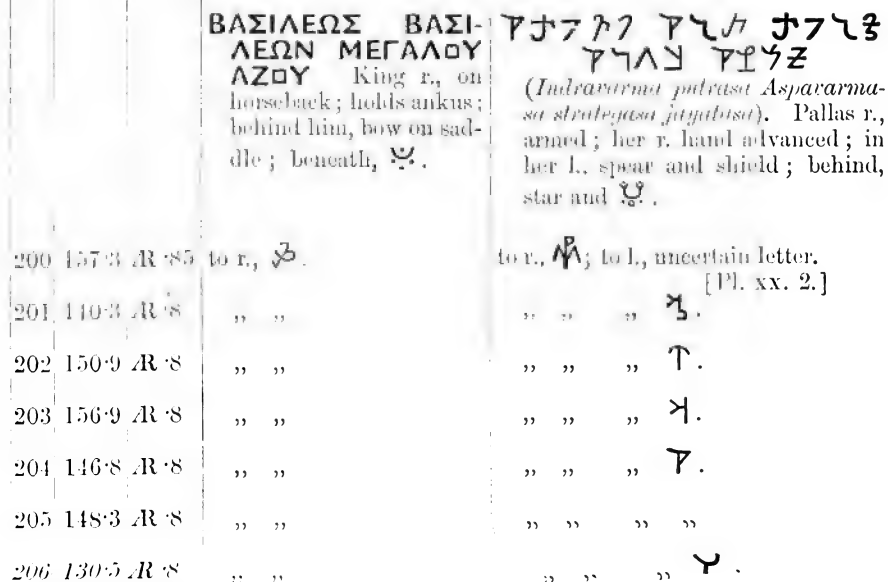 ΒΑΣΙΛΕΩΣ ΒΑΣΙ-
ΛΕΩΝ ΜΕΓΑΛΟΥ
ΑΖΟΥ King r., on
horseback; holds ankus;
behind him, bow on sad-
dle; beneath, .
(Indravarma putrasa Aspavarma-
sa strategasa jayatasa). Pallas r.,
armed; her r. hand advanced; in
her l., spear and shield; behind,
star and .
200 157·3 Æ ·85 to r., . to r., ; to l., uncertain letter.
[Pl. xx. 2.]
201 140·3 Æ ·8 ,, ,, ,, ,, ,, .
202 150·9 Æ ·8 ,, ,, ,, ,, ,, .
203 156·9 Æ ·8 ,, ,, ,, ,, ,, .
204 146·8 Æ ·8 ,, ,, ,, ,, ,, .
205 148·3 Æ ·8 ,, ,, ,, ,, ,, ,,
206 130·5 Æ ·8 ,, ,, ,, ,, ,, .